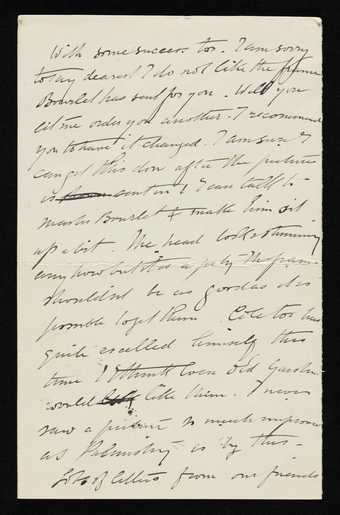 With some success too. I am sorry
to say dearest I do not like the frame
Bourlet has sent for you. Will you
let me order you another. I recommend
you to have it changed. I am sure I
can get this done after the picture
is sent in & I can talk to
master Bourlet & make him sit
up a bit. The head looks stunning
anyhow but it is a pity the frame
shouldn't be as good as it is
possible to get them. Cole too has
quite excelled himself this
time I think even Old Gardner
would like them. I never
saw a picture so much improved
as Palmistry is by this -
Lots of letters from our friends